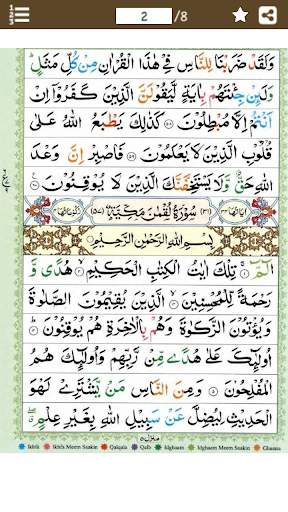 2 /8
وَلَقَدْ ضَرَبْنَا لِلنَّاسِ فِيْ هٰذَا الْقُرْاٰنِ مِنْ كُلِّ مَثَلٍ ؕ
وَلَئِنْ جِئْتَهُمْ بِاٰيَةٍ لَّيَقُوْلَنَّ الَّذِيْنَ كَفَرُوْۤا اِنْ
اَنْتُمْ اِلَّا مُبْطِلُوْنَ ۝۵۸ كَذٰلِكَ يَطْبَعُ اللّٰهُ عَلٰى
قُلُوْبِ الَّذِيْنَ لَا يَعْلَمُوْنَ ۝۵۹ فَاصْبِرْ اِنَّ وَعْدَ
اللّٰهِ حَقٌّ وَّلَا يَسْتَخِفَّنَّكَ الَّذِيْنَ لَا يُوْقِنُوْنَ ۝۶۰
اٰيَاتُهَا ۳۴ (۳۱) سُوْرَةُ لُقْمٰنَ مَكِّيَّةٌ (۵۷) رُكُوْعَاتُهَا ۴
بِسْمِ اللّٰهِ الرَّحْمٰنِ الرَّحِيْمِ
الٓمّٓ ۝۱ تِلْكَ اٰيٰتُ الْكِتٰبِ الْحَكِيْمِ ۝۲ هُدًى وَّ
رَحْمَةً لِّلْمُحْسِنِيْنَ ۝۳ الَّذِيْنَ يُقِيْمُوْنَ الصَّلٰوةَ
وَيُؤْتُوْنَ الزَّكٰوةَ وَهُمْ بِالْاٰخِرَةِ هُمْ يُوْقِنُوْنَ ۝۴
اُولٰٓئِكَ عَلٰى هُدًى مِّنْ رَّبِّهِمْ وَاُولٰٓئِكَ هُمُ
الْمُفْلِحُوْنَ ۝۵ وَمِنَ النَّاسِ مَنْ يَّشْتَرِيْ لَهْوَ
الْحَدِيْثِ لِيُضِلَّ عَنْ سَبِيْلِ اللّٰهِ بِغَيْرِ عِلْمٍ ۖ
منزل ۵
Ikhfa Ikhfa Meem Saakin Qalqala Qalb Idghaam Idghaam Meem Saakin Ghunna